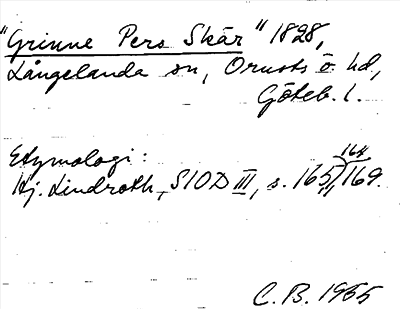 "Grinne Pers Skär" 1828,
Långelanda sn, Orusts ö. hd,
Göteb. l.
Etymologi:
Hj. Lindroth, SIOD III, s. 165, 164, 169.
C. B. 1965